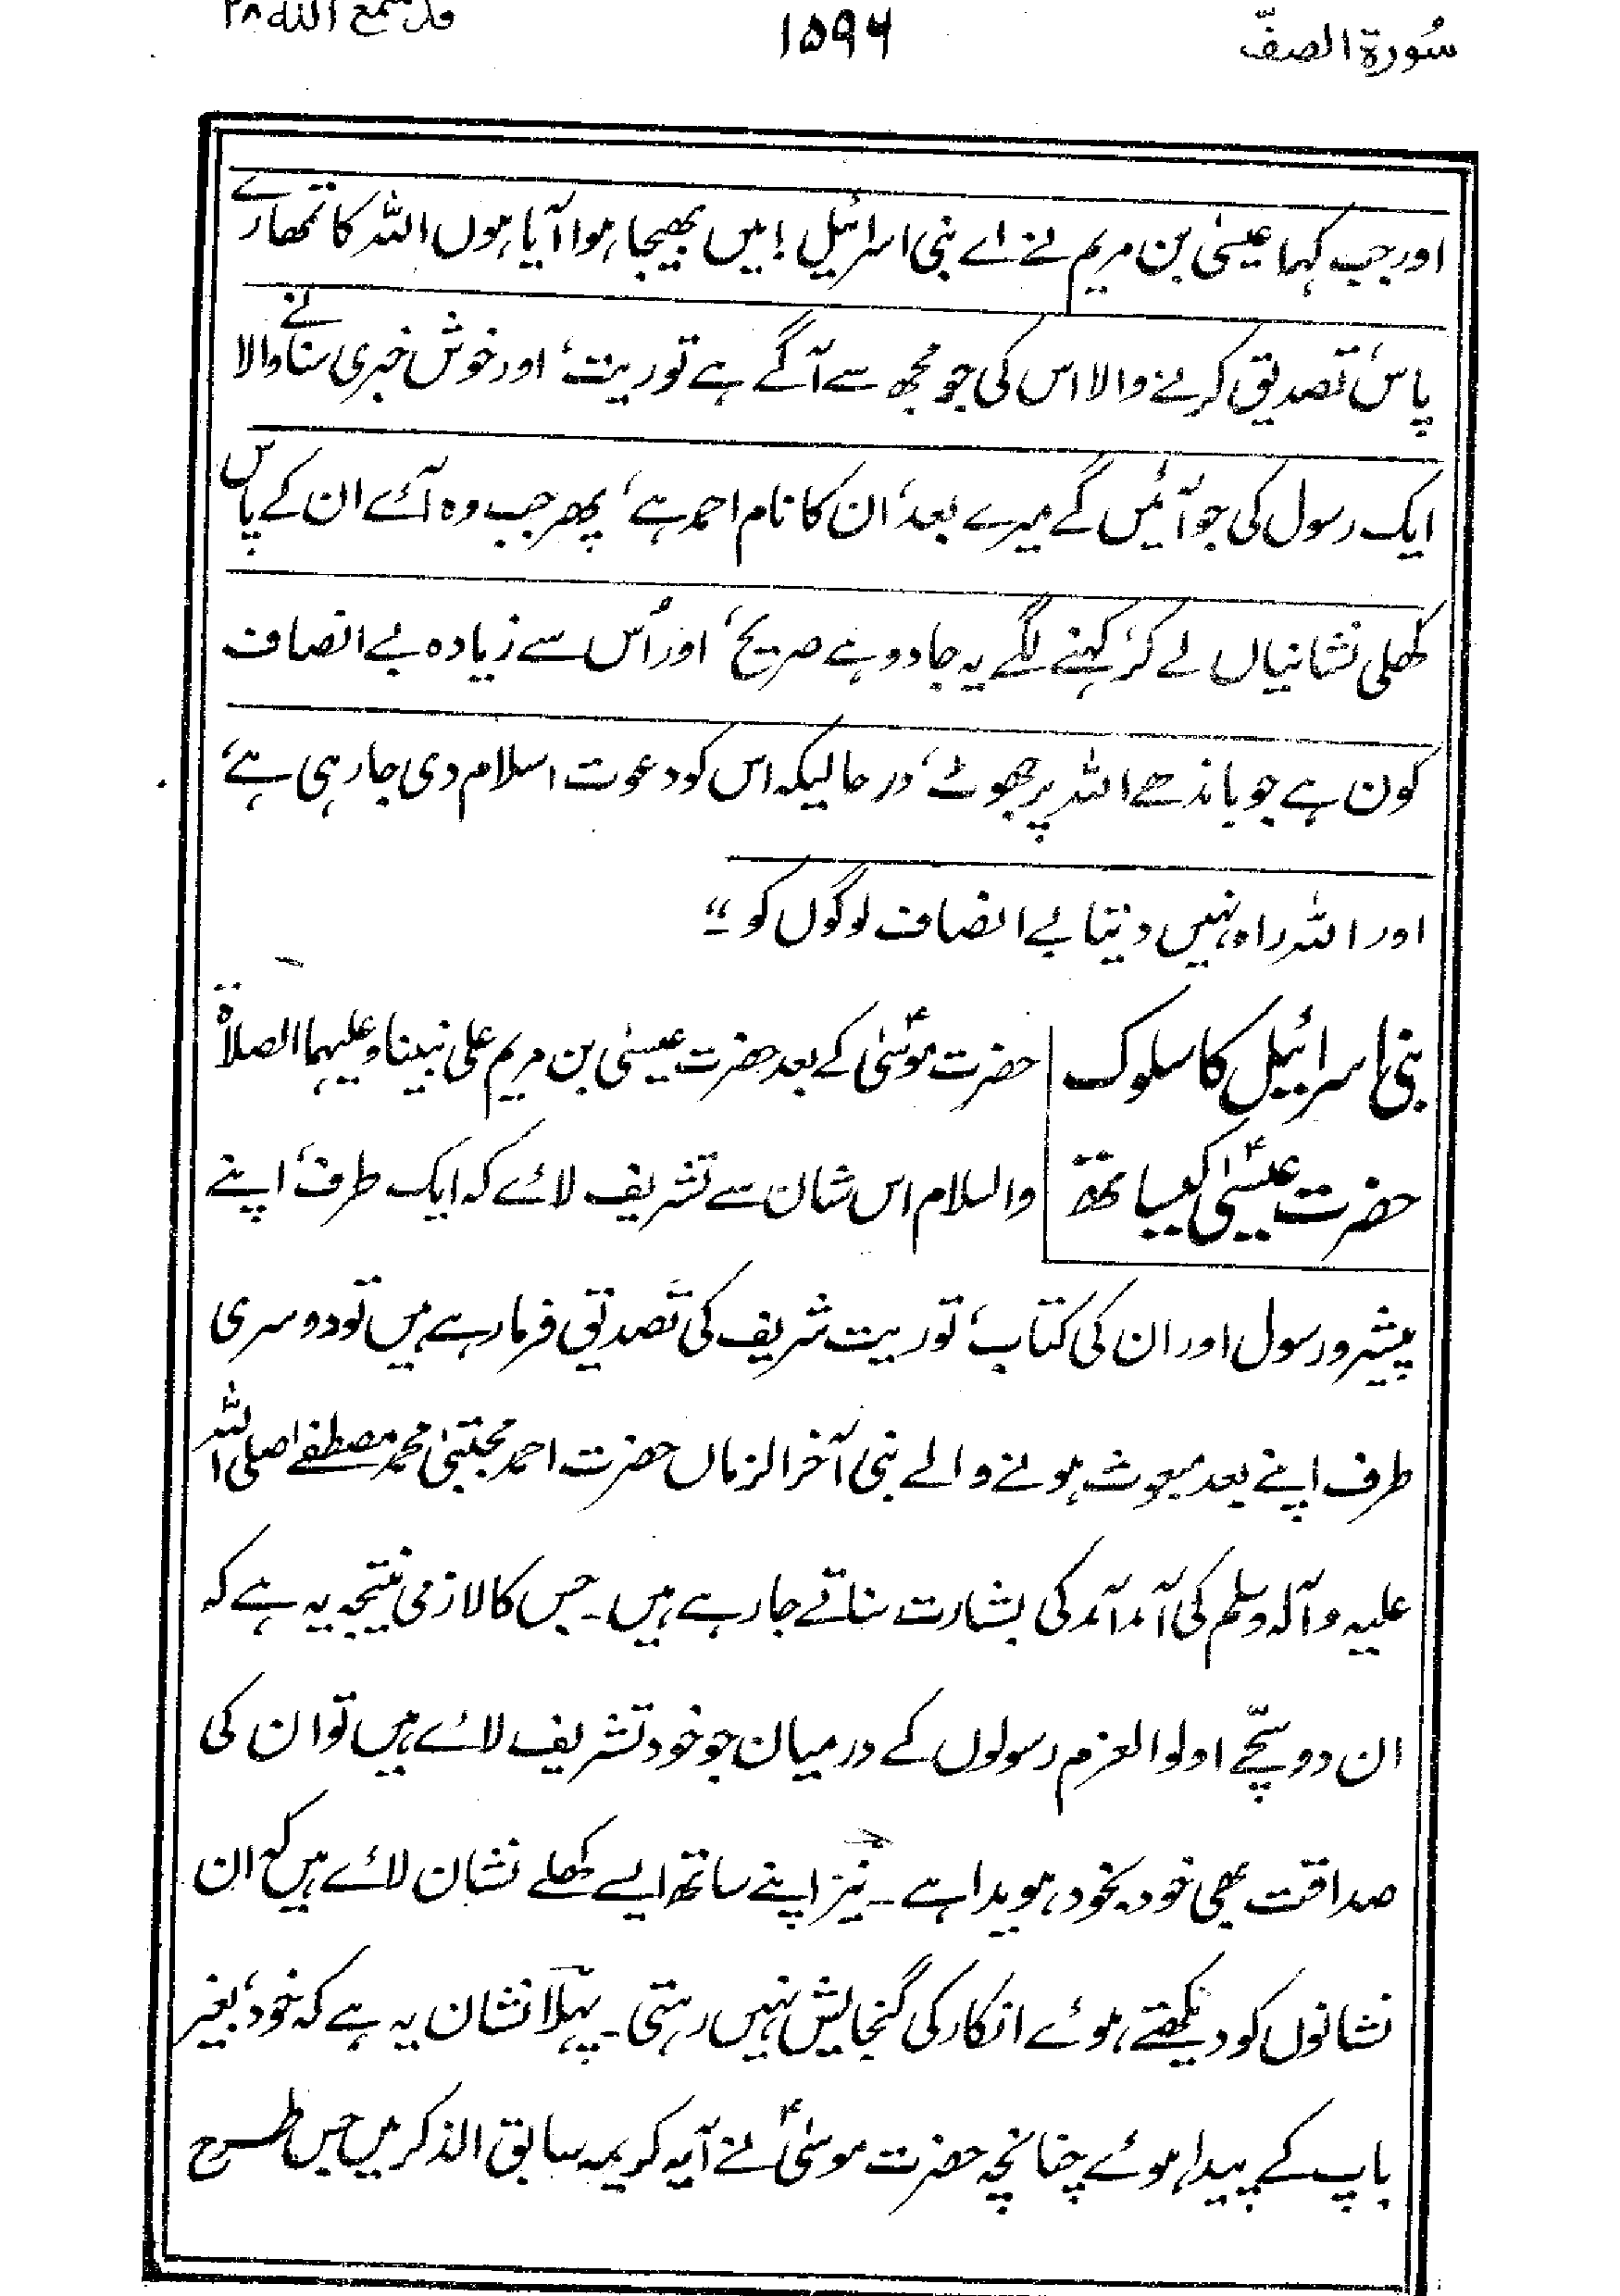 سُورة الصفّ
۱۵۹۶
قد سمع اللہ ۲۸
اور جب کہا عیسیٰ بن مریم نے اے بنی اسرائیل! میں بھیجا ہوا آیا ہوں اللہ کا تمھارے
پاس، تصدیق کرنے والا اس کی جو مجھ سے آگے ہے توریت، اور خوش خبری سنانے والا
ایک رسول کی جو آئیں گے میرے بعد، ان کا نام احمد ہے، پھر جب وہ آئے ان کے پاس
کھلی نشانیاں لے کر، کہنے لگے یہ جادو ہے صریح، اور اُس سے زیادہ بے انصاف
کون ہے جو باندھے اللہ پر جھوٹ، در حالیکہ اس کو دعوت اسلام دی جا رہی ہے،
اور اللہ راہ نہیں دیتا بے انصاف لوگوں کو ۔“
بنی اسرائیل کا سلوک
حضرت عیسیٰؑ کیساتھ
حضرت موسیٰؑ کے بعد حضرت عیسیٰ بن مریم علی نبینا و علیہما الصلاۃ
والسلام اس شان سے تشریف لائے کہ ایک طرف، اپنے
پیشرو رسول اور ان کی کتاب، توریت شریف کی تصدیق فرما رہے ہیں تو دوسری
طرف اپنے بعد مبعوث ہونے والے بنی آخر الزماں حضرت احمد مجتبیٰ محمد مصطفےٰ صلی اللہ
علیہ و آلہ وسلم کی آمد آمد کی بشارت سناتے جا رہے ہیں ۔ جس کا لازمی نتیجہ یہ ہے کہ
ان دو سچّے اولوالعزم رسولوں کے درمیان جو خود تشریف لائے ہیں تو ان کی
صداقت بھی خود بخود ہویدا ہے ۔ نیز اپنے ساتھ ایسے کھلے نشان لائے ہیں کہ ان
نشانوں کو دیکھتے ہوئے انکار کی گنجایش نہیں رہتی ۔ پہلا نشان یہ ہے کہ خود، بغیر
باپ کے پیدا ہوئے چنانچہ حضرت موسیٰؑ نے آیہ کریمہ سابق الذکر میں جس طرح